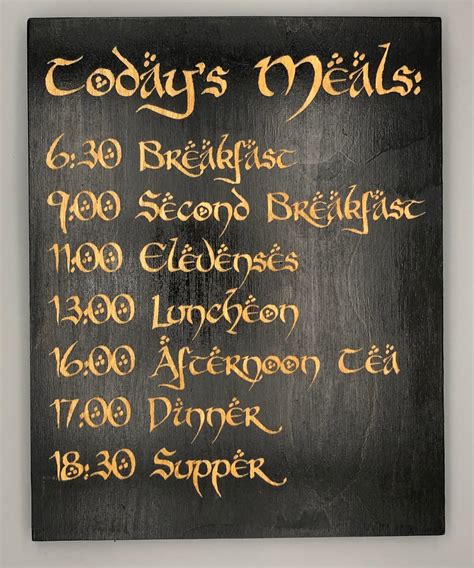 Today's Meals:
6:30 Breakfast
9:00 Second Breakfast
11:00 Elevenses
13:00 Luncheon
16:00 Afternoon Tea
17:00 Dinner
18:30 Supper